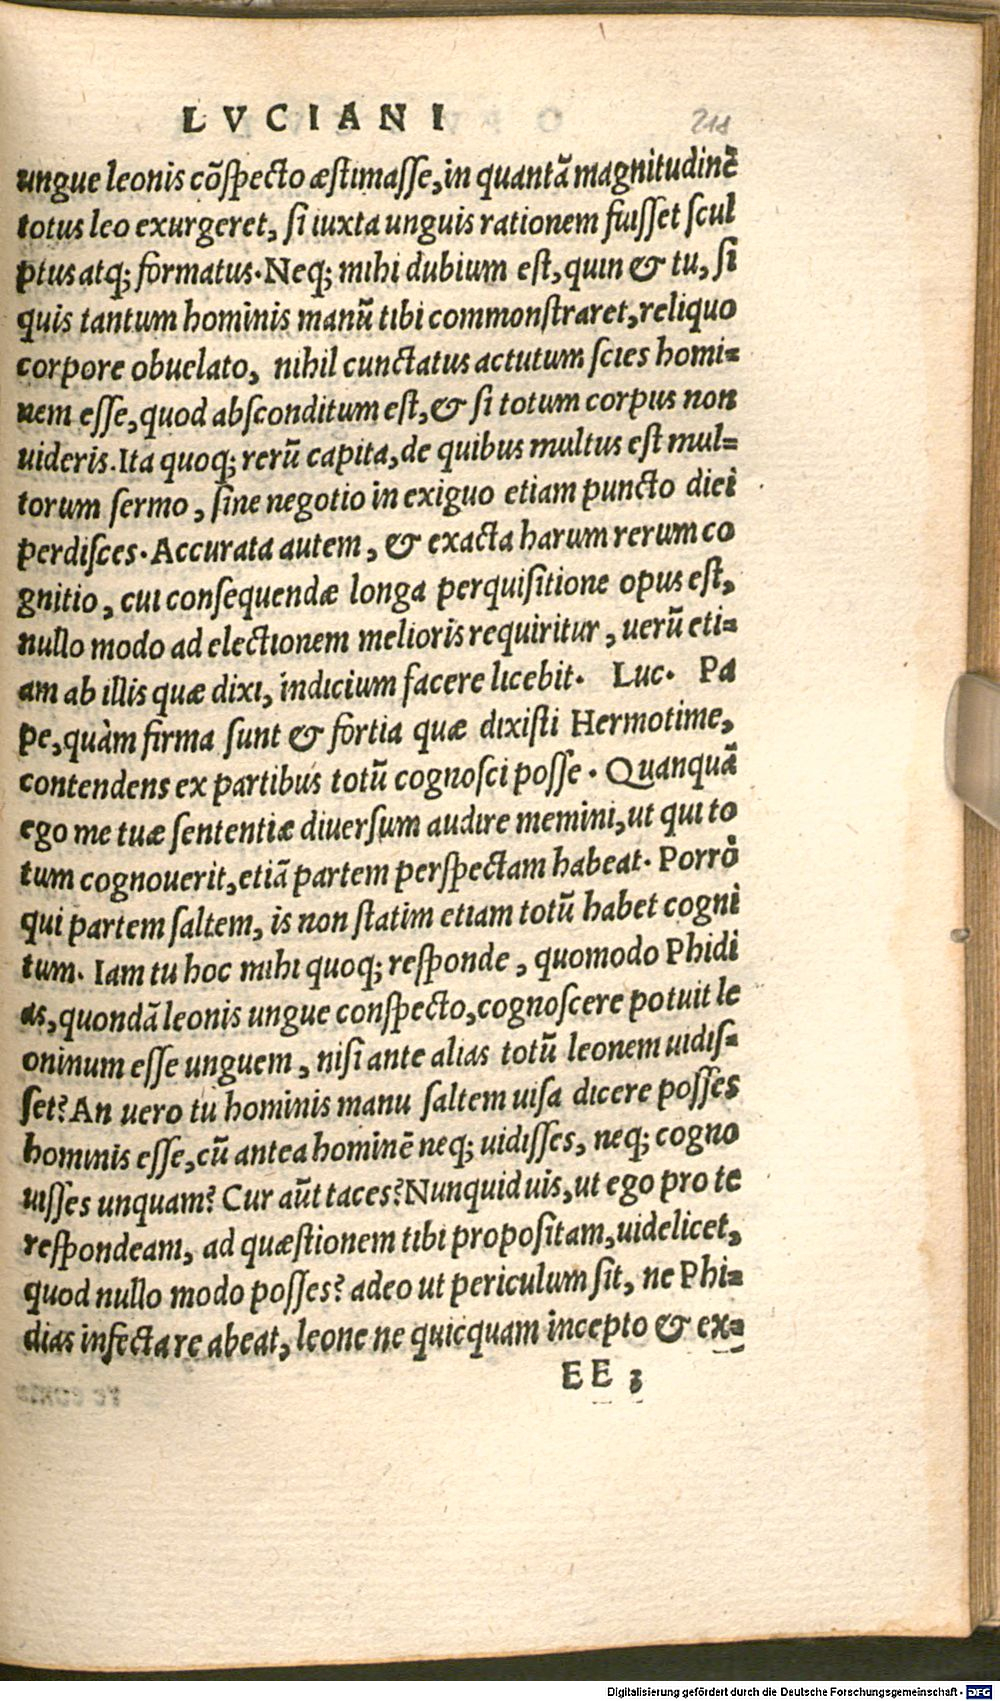 LVCIANI
218
ungue leonis cõspecto æstimasse, in quantã magnitudinẽ
totus leo exurgeret, si iuxta unguis rationem fuisset scul
ptus atq; formatus. Neq; mihi dubium est, quin & tu, si
quis tantum hominis manũ tibi commonstraret, reliquo
corpore obuelato, nihil cunctatus actutum scies homi=
nem esse, quod absconditum est, & si totum corpus non
uideris. Ita quoq; rerũ capita, de quibus multus est mul=
torum sermo, sine negotio in exiguo etiam puncto diei
perdisces. Accurata autem, & exacta harum rerum co
gnitio, cui consequendæ longa perquisitione opus est,
nullo modo ad electionem melioris requiritur, uerũ eti=
am ab illis quæ dixi, indicium facere licebit. Luc. Pa
pe, quàm firma sunt & fortia quæ dixisti Hermotime,
contendens ex partibus totũ cognosci posse. Quanquã
ego me tuæ sententiæ diuersum audire memini, ut qui to
tum cognouerit, etiã partem perspectam habeat. Porrò
qui partem saltem, is non statim etiam totũ habet cogni
tum. Iam tu hoc mihi quoq; responde, quomodo Phidi
as, quondã leonis ungue conspecto, cognoscere potuit le
oninum esse unguem, nisi ante alias totũ leonem uidis=
set? An uero tu hominis manu saltem uisa dicere posses
hominis esse, cũ antea hominẽ neq; uidisses, neq; cogno
uisses unquam? Cur aũt taces? Nunquid uis, ut ego pro te
respondeam, ad quæstionem tibi propositam, uidelicet,
quod nullo modo posses? adeo ut periculum sit, ne Phi=
dias infecta re abeat, leone ne quicquam incepto & ex=
EE 3
Digitalisierung gefördert durch die Deutsche Forschungsgemeinschaft - DFG